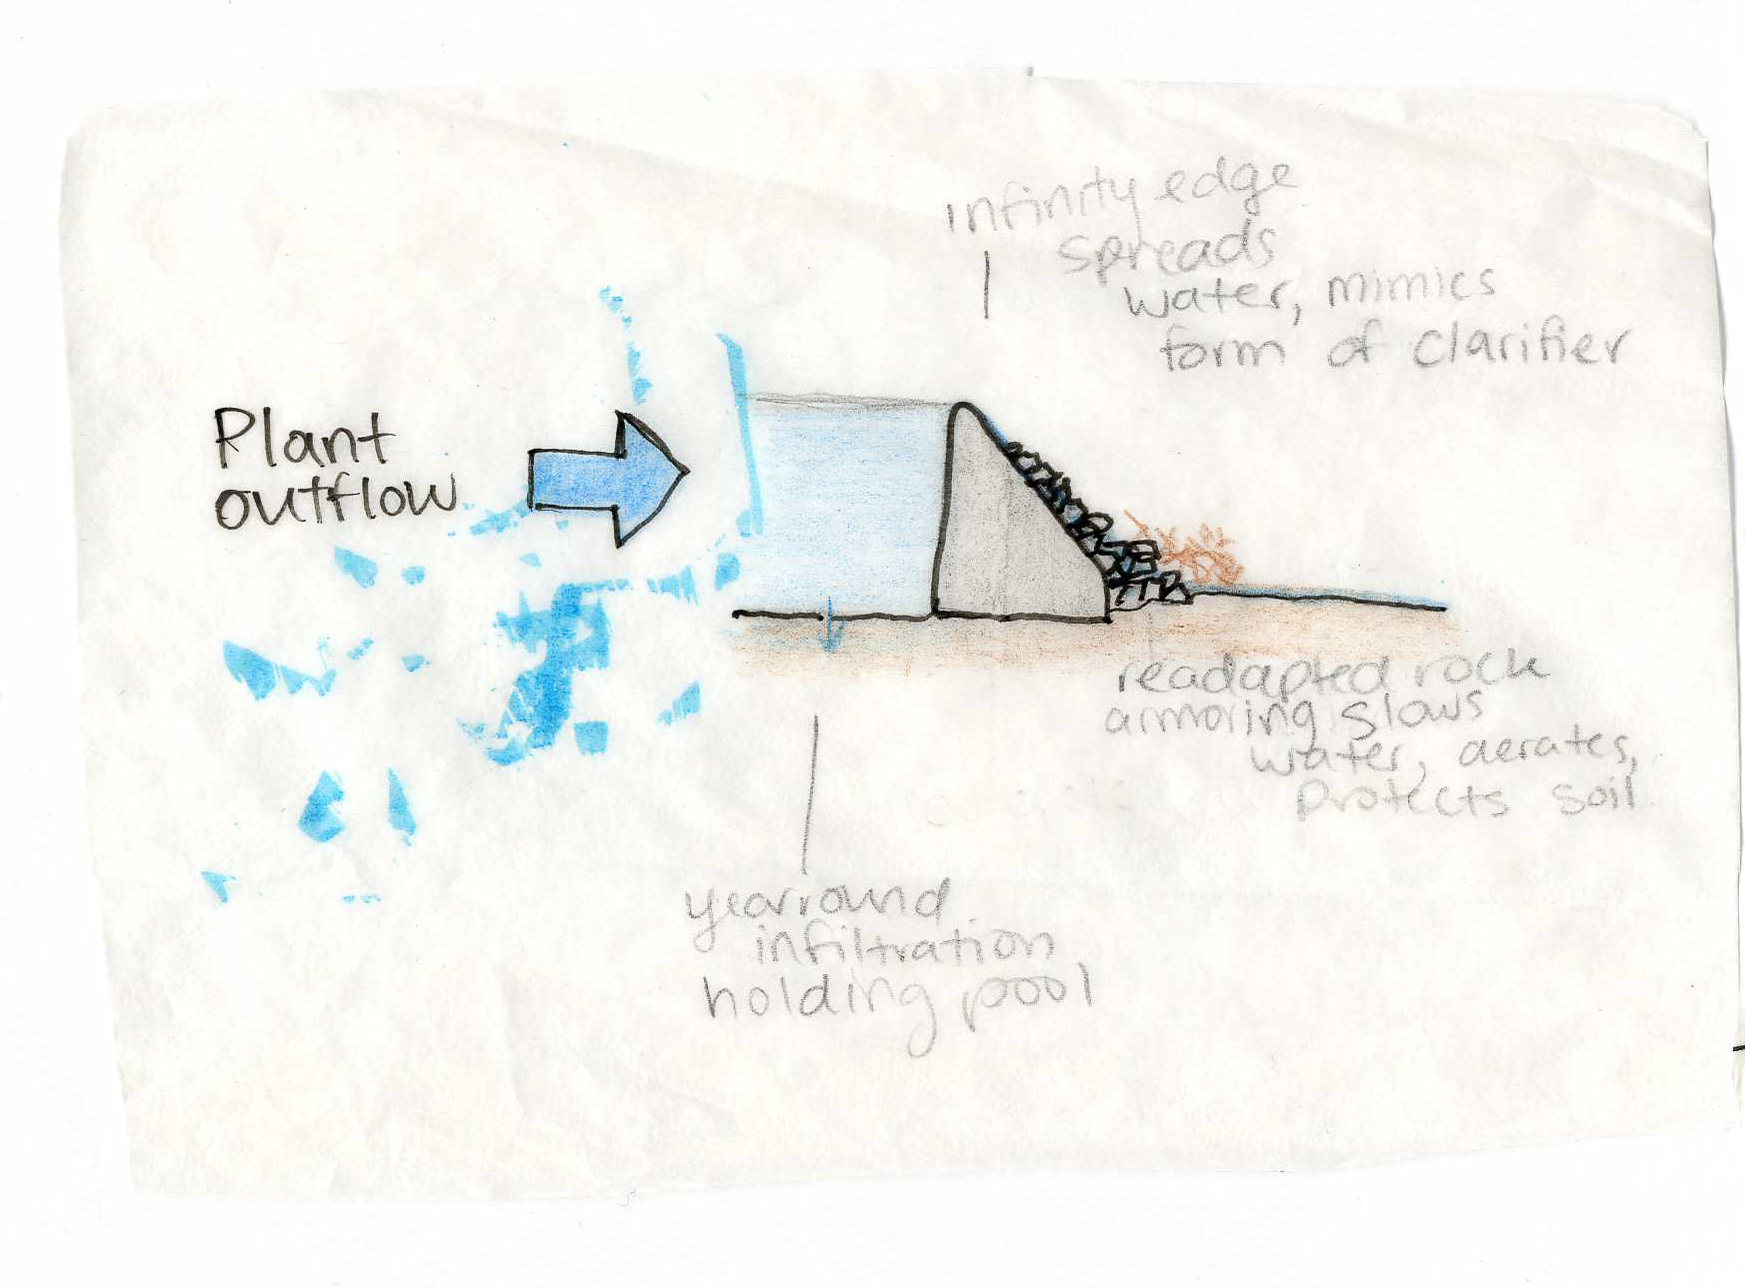 infinity edge
spreads
water, mimics
form of clarifier
Plant
outflow
readapted rock
armoring slows
water, aerates,
protects soil
yearround
infiltration
holding pool